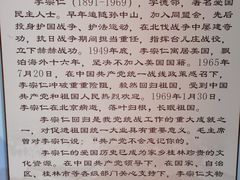 李宗仁（1891-1969），字德邻，著名爱国
民主人士。早年追随孙中山，加入同盟会，先后
投身护国战争、护法运动，在北伐战争中屡建奇
功，抗日战争期间担当重任，指挥台儿庄战役，
立下赫赫战功。1949年底，李宗仁寓居美国，飘
泊海外十六年，坚决不加入美国国籍。1965年
7月20日，在中国共产党统一战线政策感召下，
李宗仁冲破重重险阻，毅然回归祖国，受到中国
共产党和祖国人民热烈欢迎。1969年1月30日，
李宗仁在北京病逝，落叶归根，长眠祖国。
李宗仁回归是我党统战工作的重大成就之
一，对促进祖国统一大业具有重要意义。毛主席
曾对李宗仁说：“共产党不会忘记你的。”
李宗仁的爱国历史已成为家乡桂林珍贵的文
化资源。在中国共产党领导下，在国家、自治
区、桂林市等各级部门关心支持下，李宗仁文物